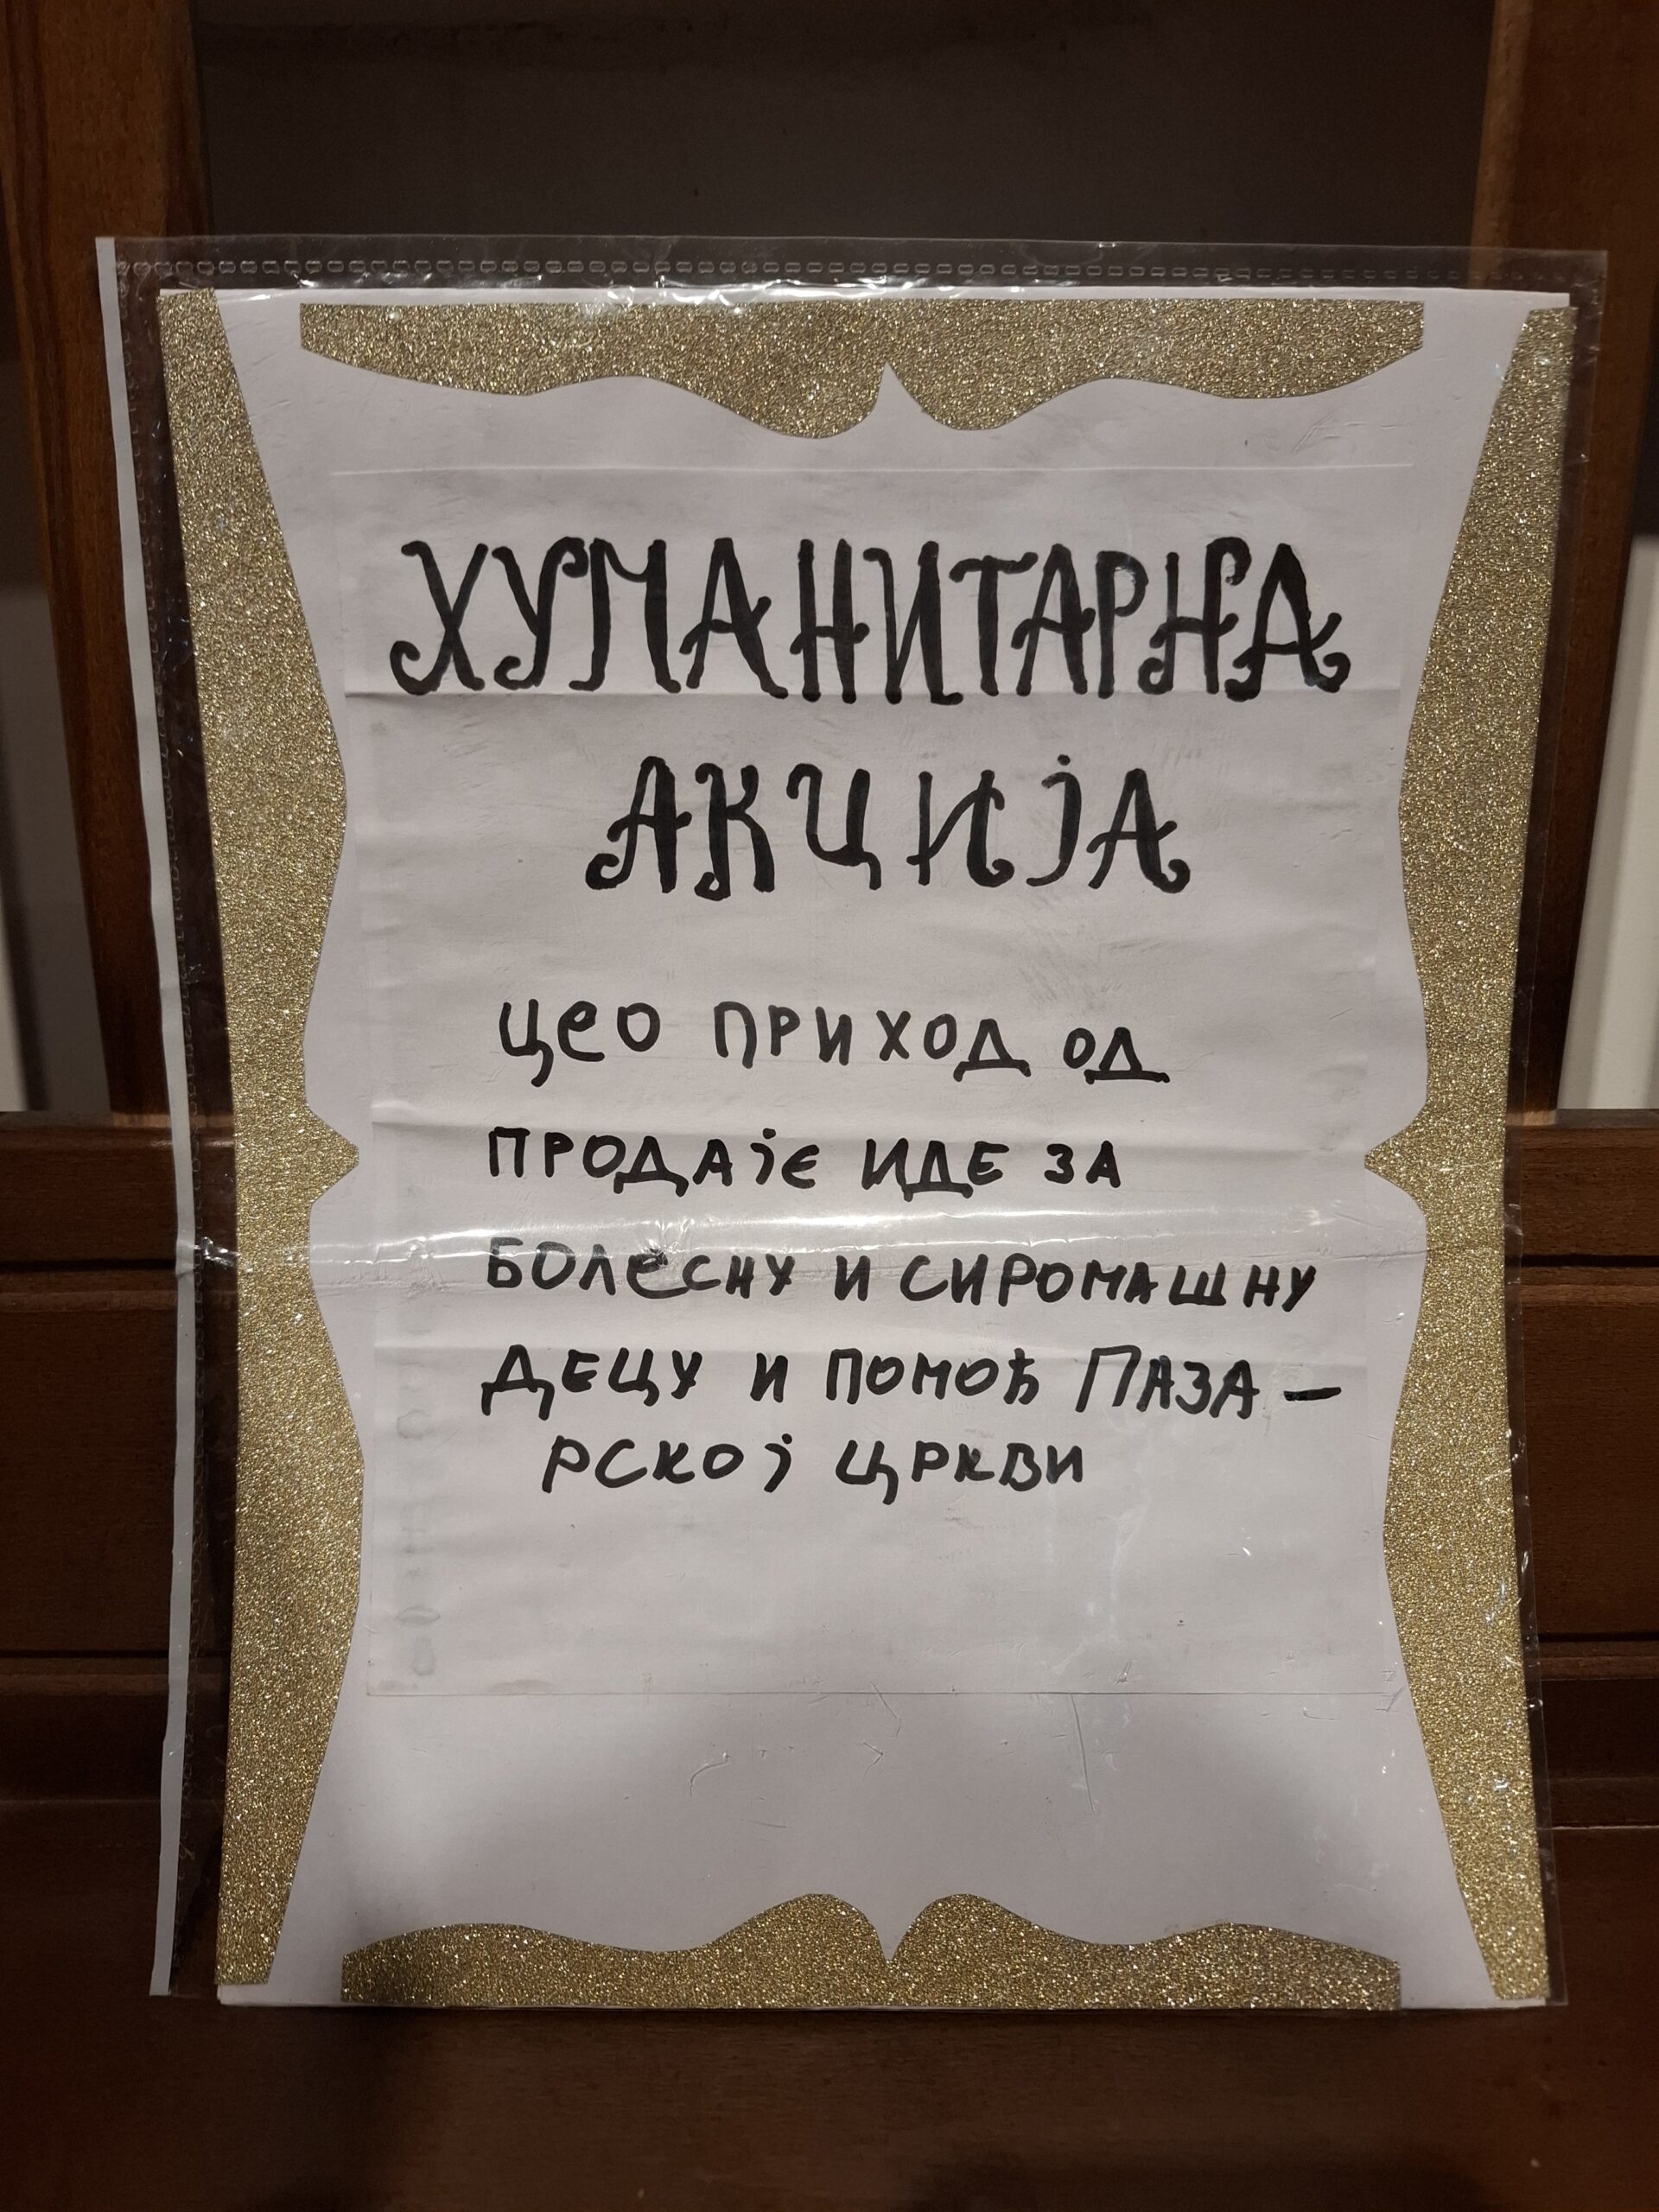 ХУМАНИТАРНА
АКЦИЈА
ЦЕО ПРИХОД ОД
ПРОДАЈЕ ИДЕ ЗА
БОЛЕСНУ И СИРОМАШНУ
ДЕЦУ И ПОМОЋ ПАЗА-
РСКОЈ ЦРКВИ